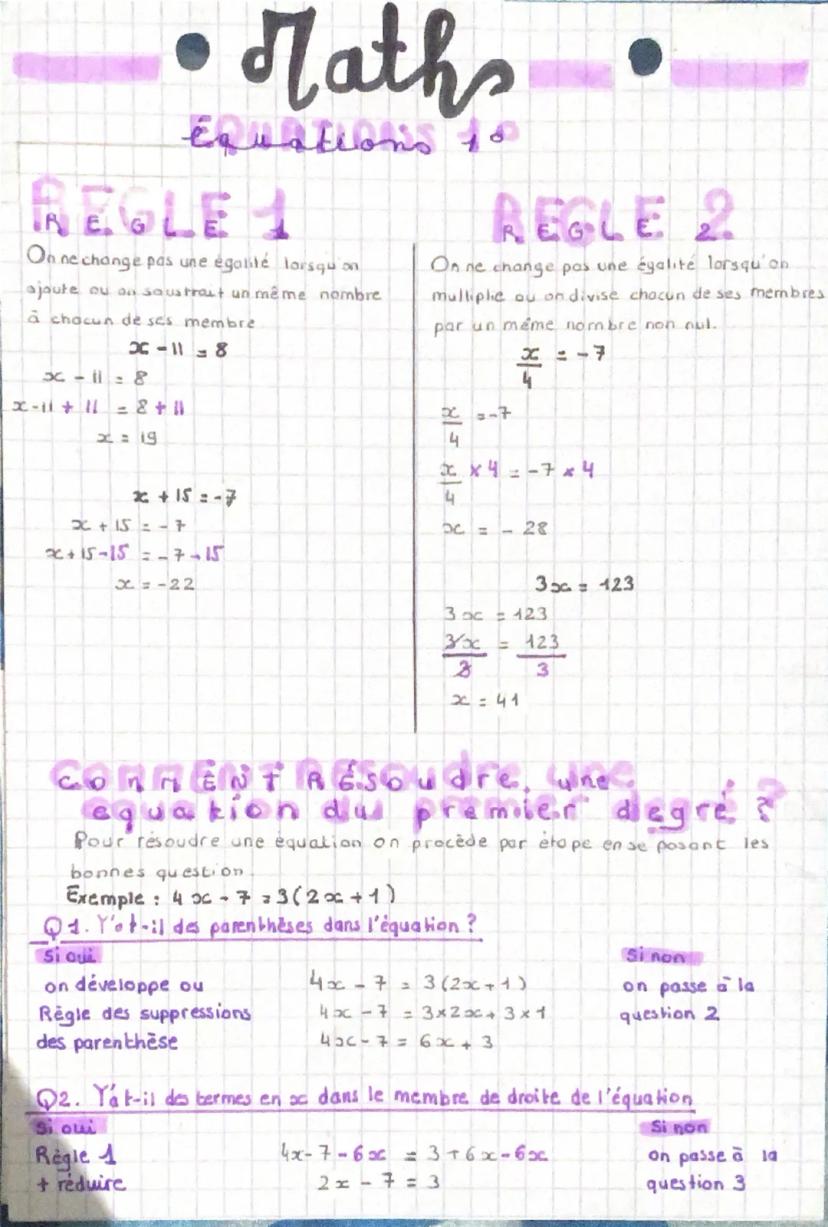 Maths
équations 1°
REGLE 1
On ne change pas une égalité lorsqu'on
ajoute ou on soustrait un même nombre
à chacun de ses membre
x - 11 = 8
x - 11 = 8
x - 11 + 11 = 8 + 11
x = 19
x + 15 = -7
x + 15 = -7
x + 15 - 15 = -7 - 15
x = -22
REGLE 2
On ne change pas une égalité lorsqu'on
multiplie ou on divise chacun de ses membres
par un même nombre non nul.
x/4 = -7
x/4 = -7
x/4 × 4 = -7 × 4
x = -28
3x = 123
3x = 123
3x/3 = 123/3
x = 41
COMMENT RÉSoudre une
equation du premier degré ?
Pour résoudre une équation on procède par étape en se posant les
bonnes question.
Exemple : 4x - 7 = 3(2x + 1)
Q1. Y'a t-il des parenthèses dans l'équation ?
Si oui
on développe ou
Règle des suppressions
des parenthèse
4x - 7 = 3(2x + 1)
4x - 7 = 3×2x + 3×1
4x - 7 = 6x + 3
Si non
on passe à la
question 2
Q2. Y'a t-il des termes en x dans le membre de droite de l'équation
Si oui
Règle 1
+ réduire
4x - 7 - 6x = 3 + 6x - 6x
2x - 7 = 3
Si non
on passe à la
question 3